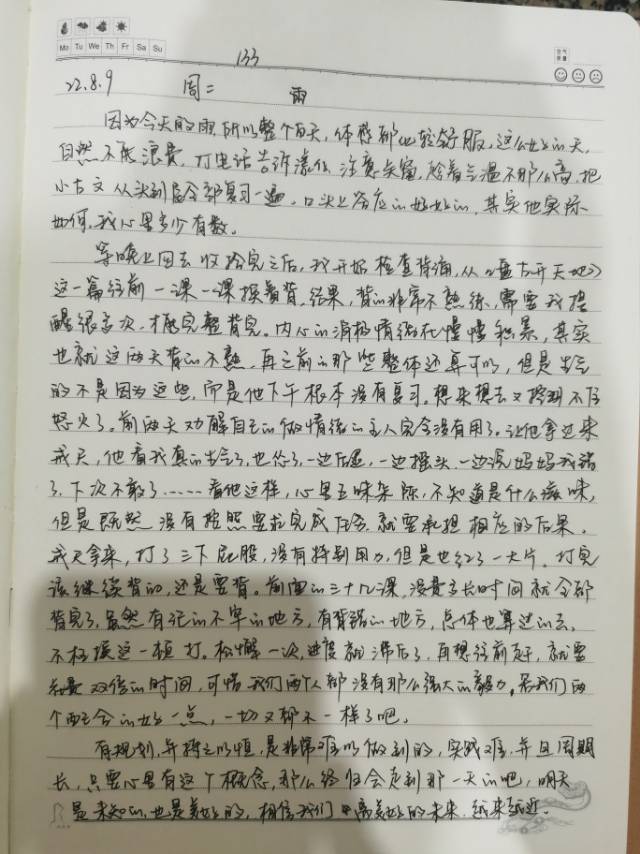 Mo Tu We Th Fr Sa Su
133
22.8.9 周二 雨
因为今天的雨,所以整个白天,体感都比较舒服,这么好的天,
自然不能浪费,打电话告诉漾仔,注意关窗,趁着气温不那么高,把
小古文从头到尾全部复习一遍。口头上答应的好好的,其实他实际
如何,我心里多少有数。
等晚上回去收拾完之后,我开始检查背诵,从《盘古开天地》
这一篇往前一课一课挨着背,结果,背的非常不熟练,需要我提
醒很多次,才能完整背完。内心的消极情绪在慢慢积累,其实
也就这两天背的不熟,再之前的那些整体还算可以,但是生气
的不是因为这些,而是他下午根本没有复习。想来想去又控制不住
怒火了。前两天劝解自己的做情绪的主人完全没有用了。让他拿过来
戒尺,他看我真的生气了,也怂了,一边后退,一边摇头,一边说妈妈我错
了,下次不敢了……看他这样,心里五味杂陈,不知道是什么滋味,
但是既然没有按照要求完成任务,就要承担相应的后果。
戒尺拿来,打了三下屁股,没有特别用力,但是也红了一大片。打完
该继续背的,还是要背。前面的三十几课,没费多长时间就全部
背完了,虽然有记的不牢的地方,有背错的地方,总体也算过的去。
不枉挨这一顿打。松懈一次,进度就滞后了,再想往前赶,就要
花费双倍的时间,可惜我们两个人都没有那么强大的毅力。若我们两
个配合的好一点,一切又都不一样了吧。
有规划,并持之以恒,是非常难以做到的,实践难,并且周期
长,只要心里有这个概念,那么终归会走到那一天的吧,明天
是未知的,也是美好的,相信我们离美好的未来,越来越近。